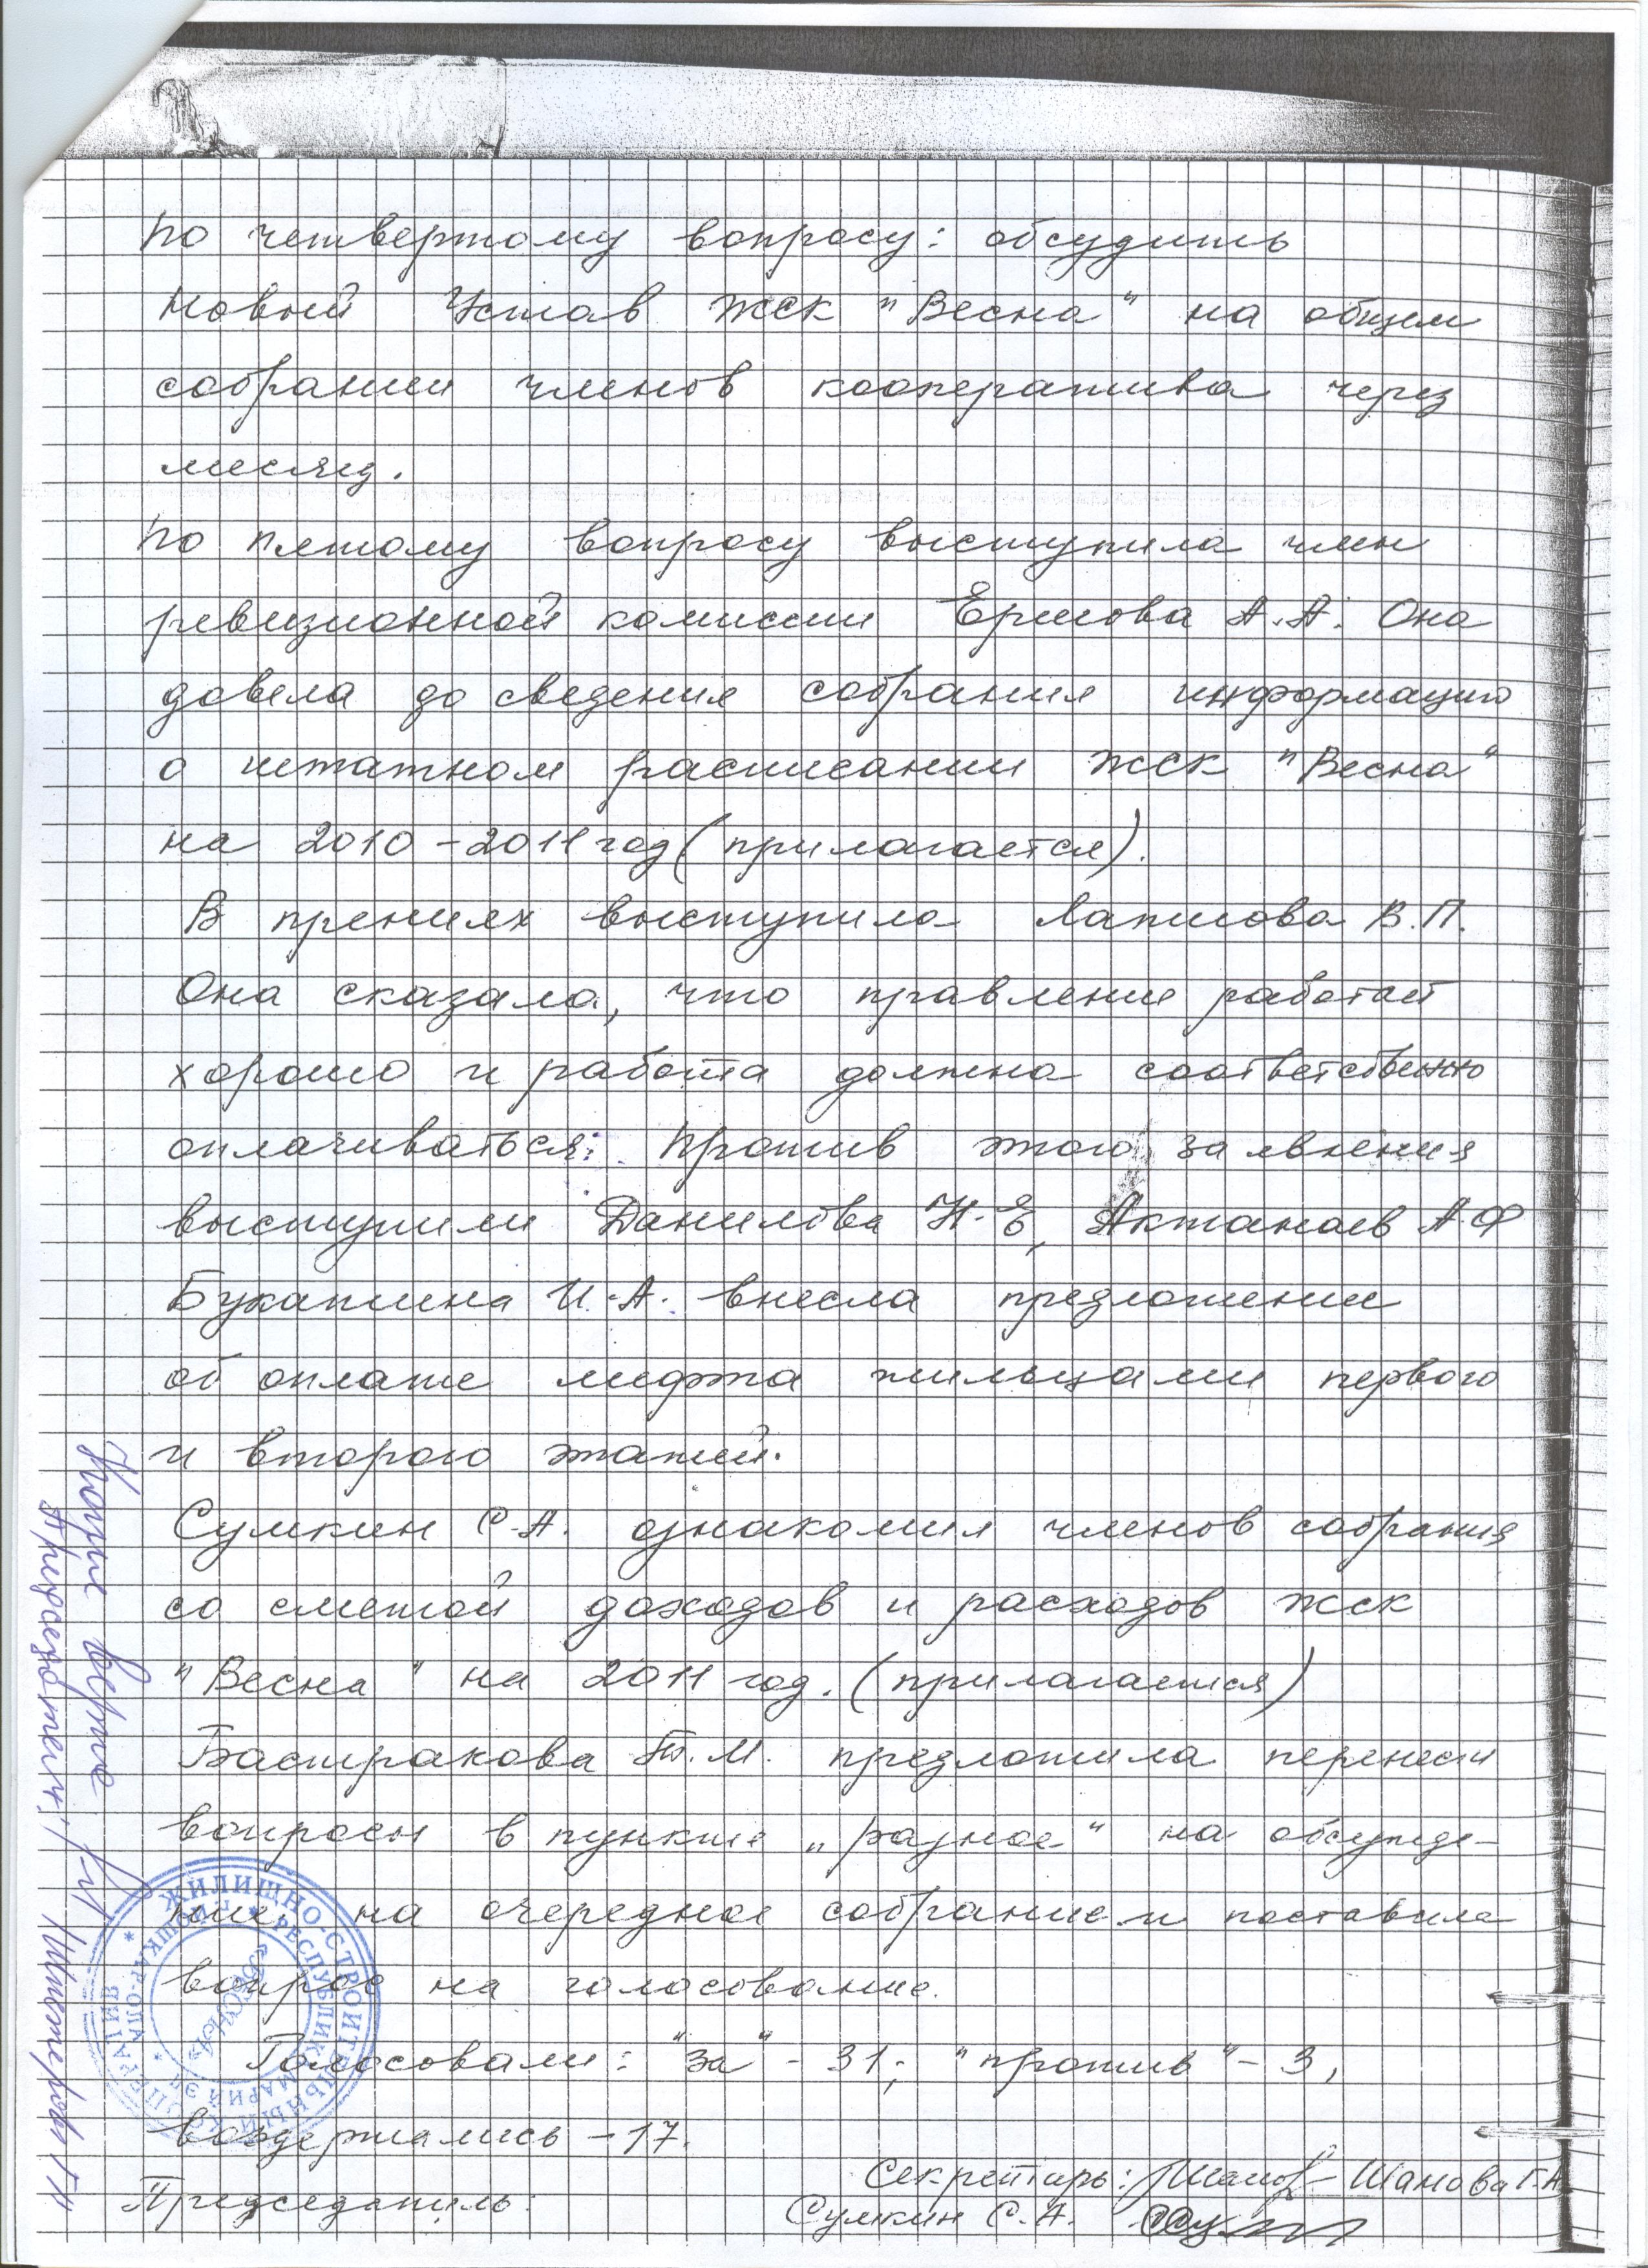 По четвертому вопросу: обсудить
Новый Устав ЖСК "Весна" на общем
собрании членов кооператива через
месяц.
По пятому вопросу выступила член
ревизионной комиссии А.А. Она
довела до сведения собрания информацию
о штатном расписании ЖСК "Весна"
на 2010-2011 год (прилагается).
В прениях выступила Лаптева В.П.
Она сказала, что правление работает
хорошо и работа должна соответственно
оплачиваться. Против этого заявления
выступили Данилова Н.Е, Актанаев А.Ф
Букатина И.А. внесла предложение
об оплате лифта жильцами первого
и второго этажей.
Сумкин С.А. ознакомил членов собрания
со сметой доходов и расходов ЖСК
"Весна" на 2011 год. (прилагается)
Бастракова Т.М. предложила перенести
вопросы в пункте "разное" на обсужде-
ние на очередное собрание и поставила
вопрос на голосование.
Голосовали: "за" - 31; "против" - 3,
воздержались - 17.
Секретарь: Шамова Г.А.
Председатель: Сумкин С.А.
Копия верна
Председатель
ЖИЛИЩНО-СТРОИТЕЛЬНЫЙ КООПЕРАТИВ
РЕСПУБЛИКА МАРИЙ ЭЛ * Г. ЙОШКАР-ОЛА
«ВЕСНА»